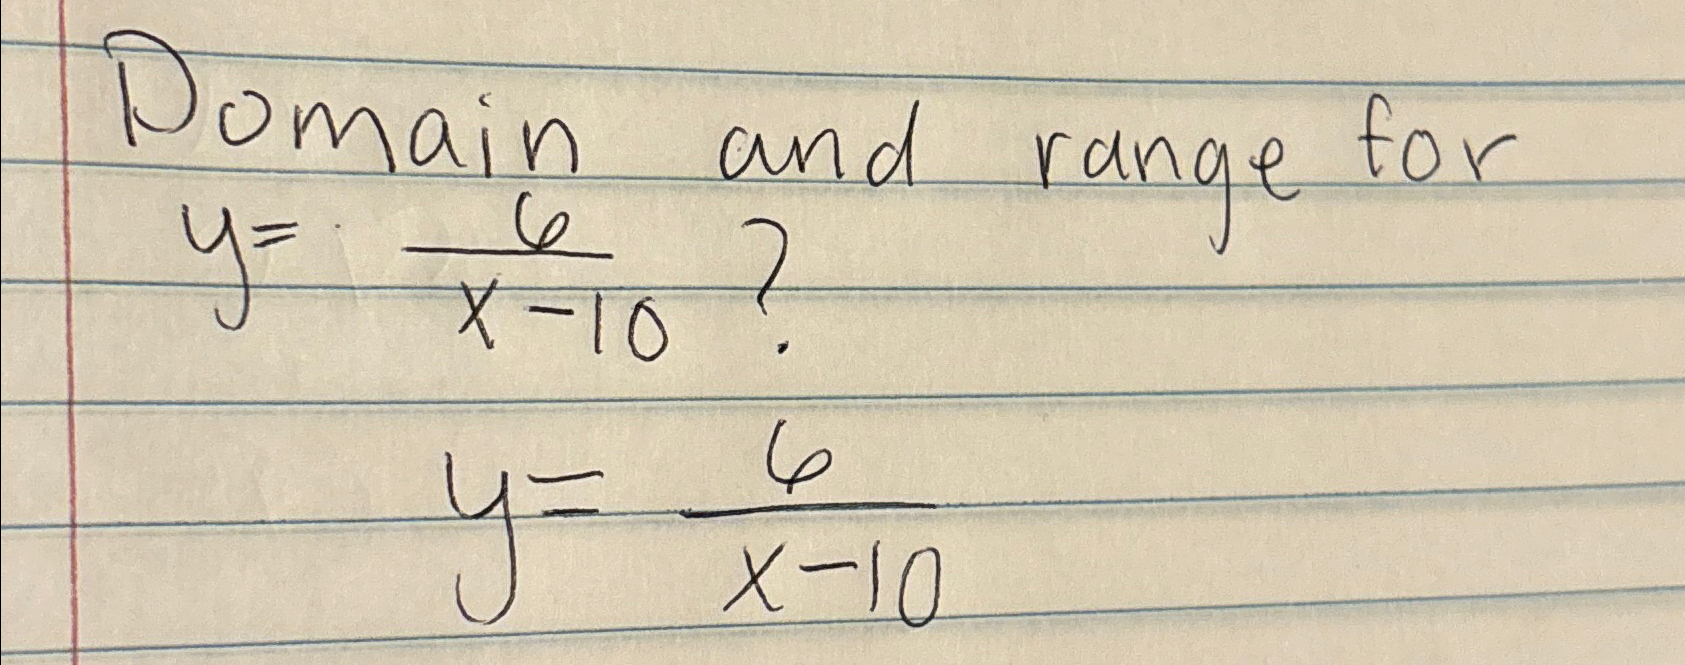 Domain and range for
y= 6/(x-10) ?
y= 6/(x-10)